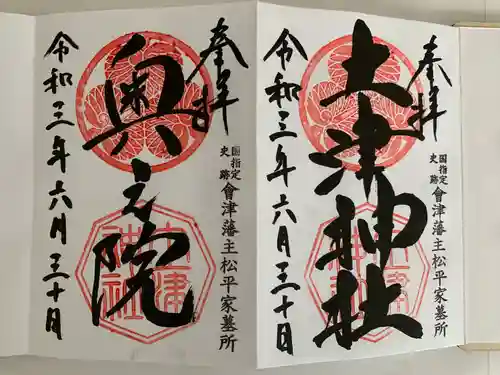 奉拝
国指定史跡 會津藩主松平家墓所
土津神社
土津神社
令和三年六月三十日
奉拝
国指定史跡 會津藩主松平家墓所
奥之院
土津神社
令和三年六月三十日